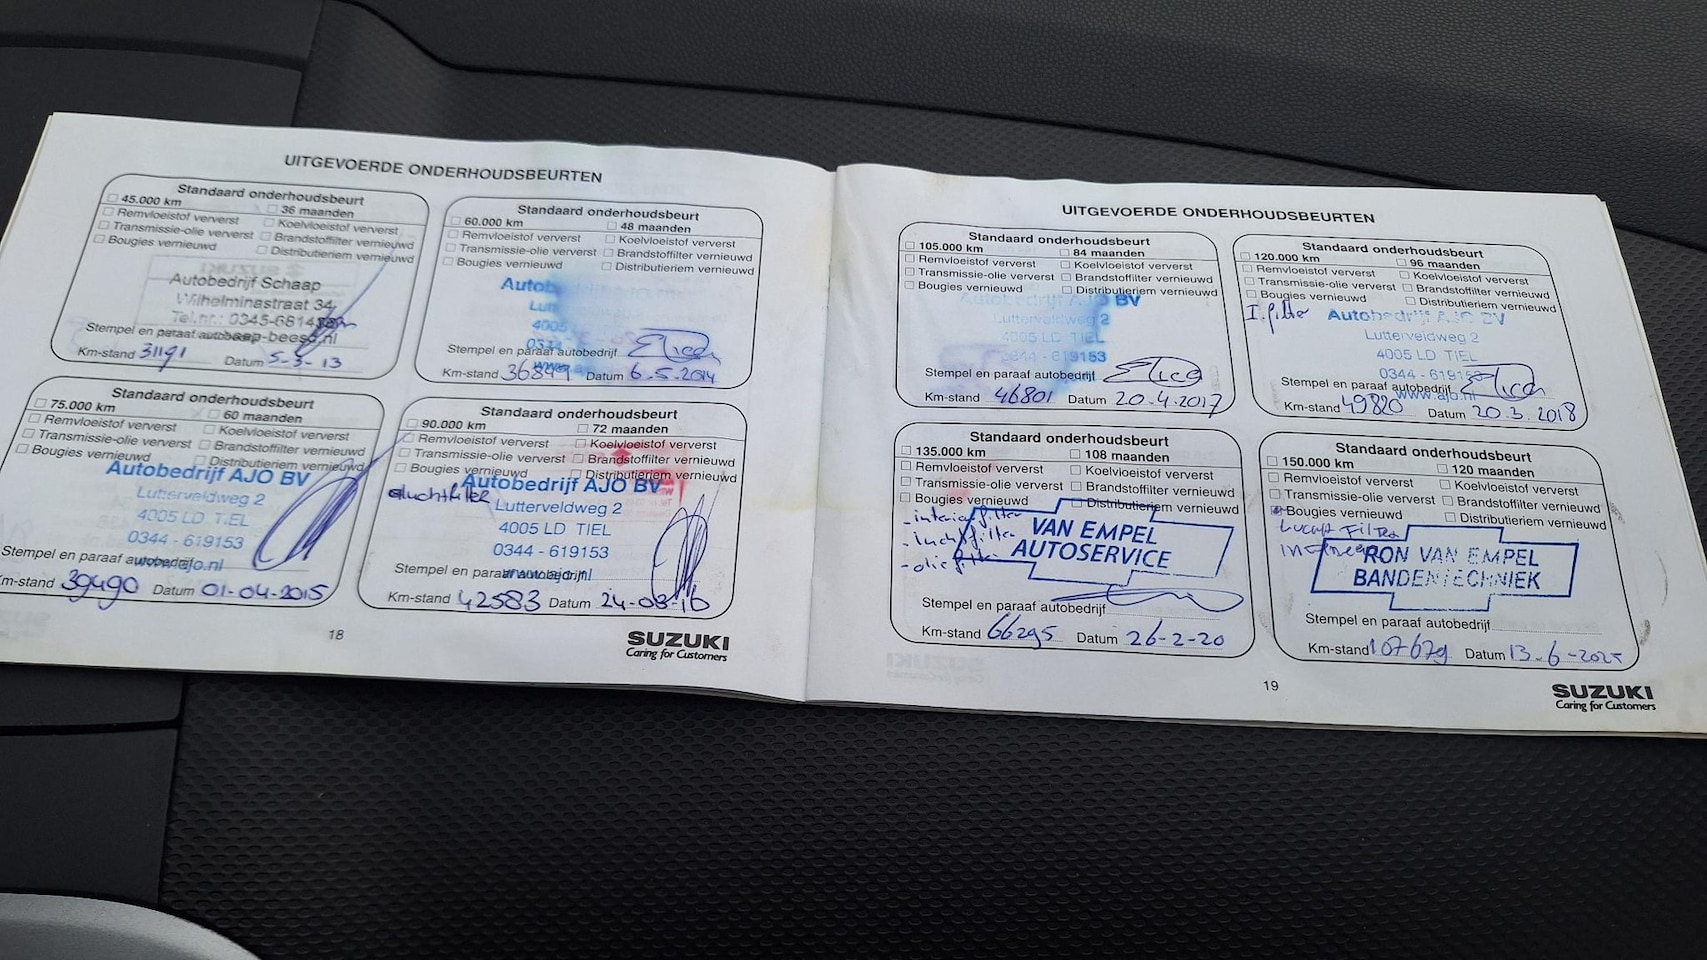 UITGEVOERDE ONDERHOUDSBEURTEN
Standaard onderhoudsbeurt
45.000 km 36 maanden
Remvloeistof ververst Koelvloeistof ververst
Transmissie-olie ververst Brandstoffilter vernieuwd
Bougies vernieuwd Distributieriem vernieuwd
Autobedrijf Schaap
Wilhelminastraat 34
Tel.nr.: 0345-6814
Stempel en paraaf autobedrijf
Km-stand 31191 Datum 5-3-13
Standaard onderhoudsbeurt
60.000 km 48 maanden
Remvloeistof ververst Koelvloeistof ververst
Transmissie-olie ververst Brandstoffilter vernieuwd
Bougies vernieuwd Distributieriem vernieuwd
Stempel en paraaf autobedrijf
Km-stand Datum 6.5.2014
Standaard onderhoudsbeurt
75.000 km 60 maanden
Remvloeistof ververst Koelvloeistof ververst
Transmissie-olie ververst Brandstoffilter vernieuwd
Bougies vernieuwd Distributieriem vernieuwd
Autobedrijf AJO BV
Lutterveldweg 2
4005 LD TIEL
0344 - 619153
www.ajo.nl
Stempel en paraaf autobedrijf
Km-stand 39490 Datum 01-04-2015
Standaard onderhoudsbeurt
90.000 km 72 maanden
Remvloeistof ververst Koelvloeistof ververst
Transmissie-olie ververst Brandstoffilter vernieuwd
Bougies vernieuwd Distributieriem vernieuwd
luchtfilter
Autobedrijf AJO BV
Lutterveldweg 2
4005 LD TIEL
0344 - 619153
www.ajo.nl
Stempel en paraaf autobedrijf
Km-stand 42583 Datum 24-03-16
18
SUZUKI
Caring for Customers
UITGEVOERDE ONDERHOUDSBEURTEN
Standaard onderhoudsbeurt
105.000 km 84 maanden
Remvloeistof ververst Koelvloeistof ververst
Transmissie-olie ververst Brandstoffilter vernieuwd
Bougies vernieuwd Distributieriem vernieuwd
Autobedrijf AJO BV
Lutterveldweg 2
4005 LD TIEL
0344 - 619153
Stempel en paraaf autobedrijf
Km-stand 46801 Datum 20.4.2017
Standaard onderhoudsbeurt
120.000 km 96 maanden
Remvloeistof ververst Koelvloeistof ververst
Transmissie-olie ververst Brandstoffilter vernieuwd
Bougies vernieuwd Distributieriem vernieuwd
I.filter
Autobedrijf AJO BV
Lutterveldweg 2
4005 LD TIEL
0344 - 619153
www.ajo.nl
Stempel en paraaf autobedrijf
Km-stand 49820 Datum 20.3.2018
Standaard onderhoudsbeurt
135.000 km 108 maanden
Remvloeistof ververst Koelvloeistof ververst
Transmissie-olie ververst Brandstoffilter vernieuwd
Bougies vernieuwd Distributieriem vernieuwd
- interieurfilter
- luchtfilter
- oliefilter
VAN EMPEL
AUTOSERVICE
Stempel en paraaf autobedrijf
Km-stand 66295 Datum 26-2-20
Standaard onderhoudsbeurt
150.000 km 120 maanden
Remvloeistof ververst Koelvloeistof ververst
Transmissie-olie ververst Brandstoffilter vernieuwd
Bougies vernieuwd Distributieriem vernieuwd
Lucht Filter
RON VAN EMPEL
BANDENTECHNIEK
Stempel en paraaf autobedrijf
Km-stand 107679 Datum 13-6-2025
19
SUZUKI
Caring for Customers